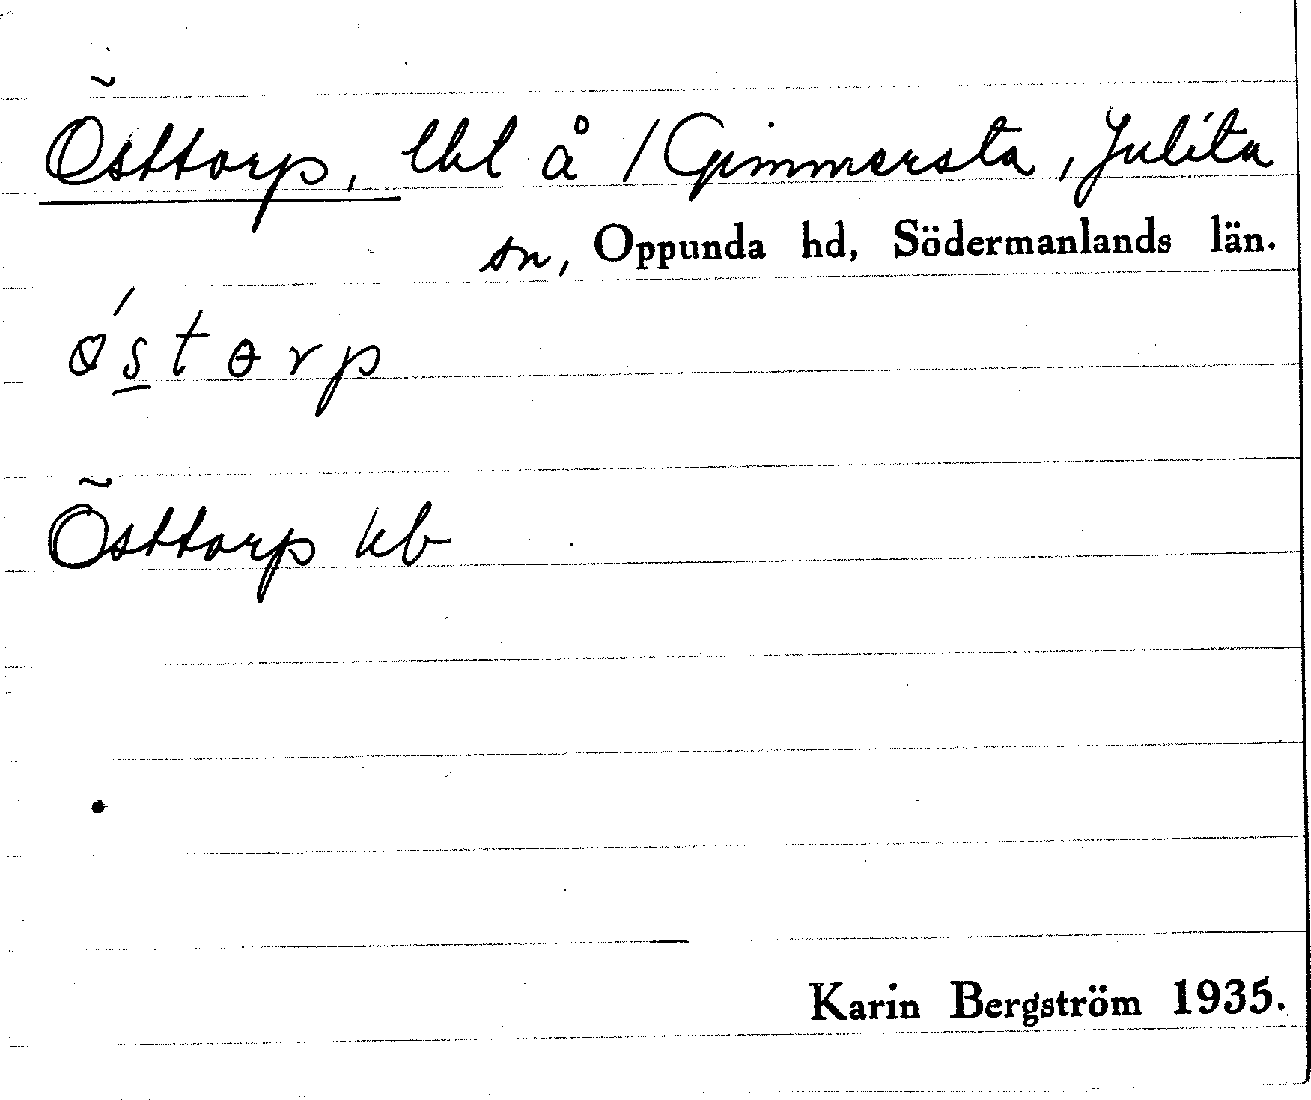 Östtorp, lht å / Gimmersta, Julita
sn, Oppunda hd, Södermanlands län.
ǿstɵrp
Östtorp kb
Karin Bergström 1935.